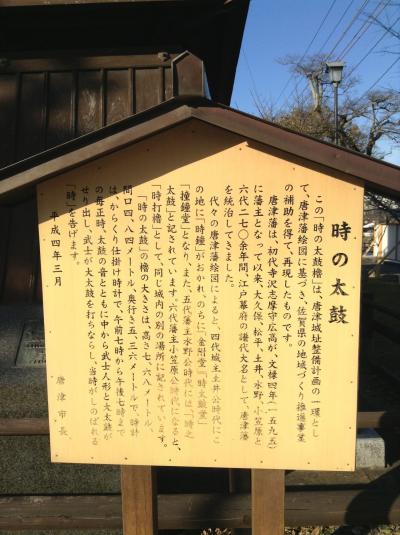 時の太鼓
この「時の太鼓櫓」は、唐津城址整備計画の一環とし
て、唐津藩絵図に基づき、佐賀県の地域づくり推進事業
の補助を得て、再現したものです。
唐津藩は、初代寺沢志摩守広高が、文禄四年(一五九五)
に藩主となって以来、大久保、松平、土井、水野、小笠原と
六代二七〇余年間、江戸幕府の譜代大名として、唐津藩
を統治してきました。
代々の唐津藩絵図によると、四代城主土井公時代にこ
の地に「時鐘」がおかれ、のちに「金附堂」「時太鼓堂」
「撞鐘堂」となり、また、五代藩主水野公時代には「時之
太鼓」と記されています。六代藩主小笠原公時代になると、
「時打櫓」として、同じ城内の別の場所に記されています。
「時の太鼓」の櫓の大きさは、高さ七、六八メートル、
間口四、八四メートル、奥行き五、三六メートルで、時計
はからくり仕掛け時計で、午前七時から午後七時まで
の毎正時、太鼓の音とともに中から武士人形と大太鼓が
せり出し、武士が大太鼓を打ちならし、当時がしのばれる
「時」を告げます。
平成四年三月
唐津市長